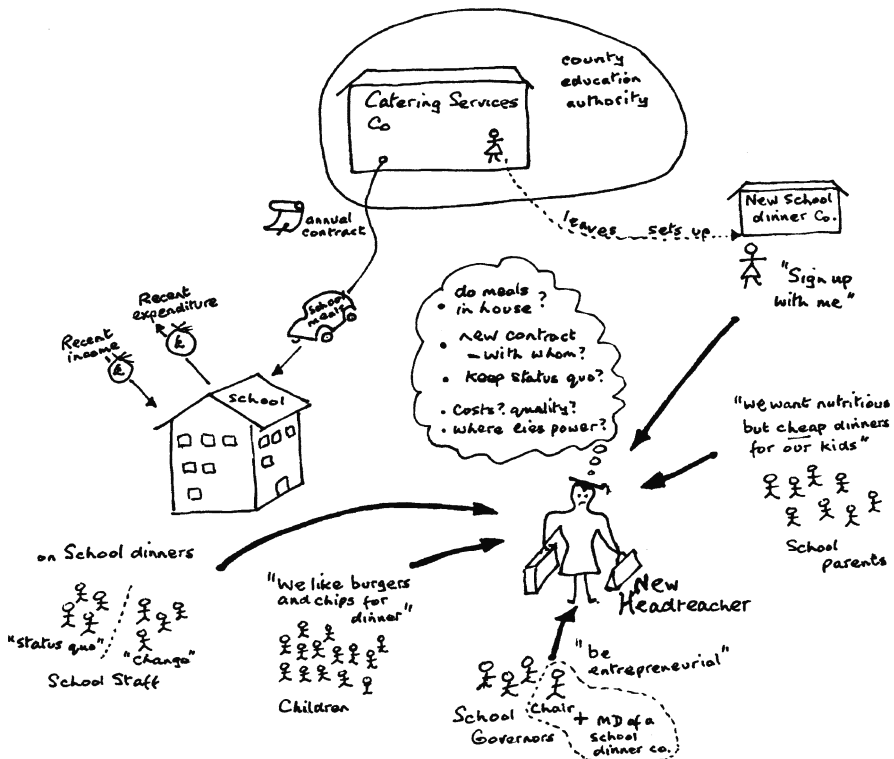 county
education
authority
Catering Services
Co
annual
contract
leaves sets up
New School
dinner Co.
"Sign up
with me"
School
meals
Recent
expenditure
£
Recent
income
£
School
• do meals
in house?
• new contract
– with whom?
• keep status quo?
• costs? quality?
• where lies power?
"We want nutritious
but cheap dinners
for our kids"
School
parents
New
Headteacher
on School dinners
"Status quo"
"Change"
School Staff
"We like burgers
and chips for
dinner"
Children
"be
entrepreneurial"
School
Governors
Chair
+ MD of a
school
dinner co.